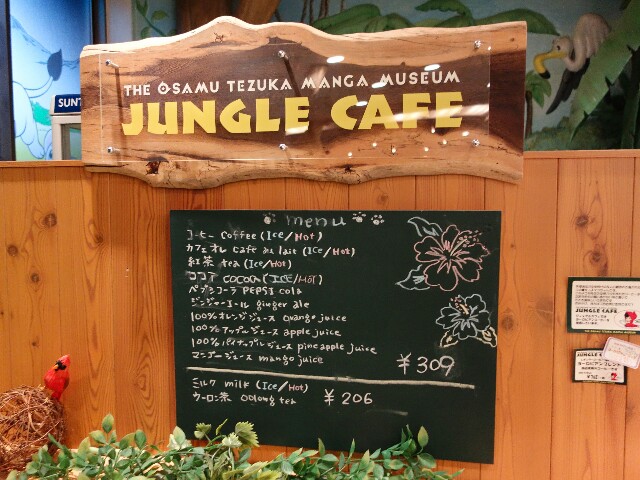 THE OSAMU TEZUKA MANGA MUSEUM
JUNGLE CAFE
SUNT
menu
コーヒー coffee (Ice/Hot)
カフェオレ cafe au lait (Ice/Hot)
紅茶 tea (Ice/Hot)
ココア cocoa (ICE/HOT)
ペプシコーラ PEPSI cola
ジンジャーエール ginger ale
100%オレンジジュース orange juice
100%アップルジュース apple juice
100%パイナップルジュース pineapple juice
マンゴージュース mango juice ¥309
ミルク milk (Ice/Hot)
ウーロン茶 oolong tea ¥206
JUNGLE CAFE
JUNGLE CAFE
ヨーロピアンブレンド